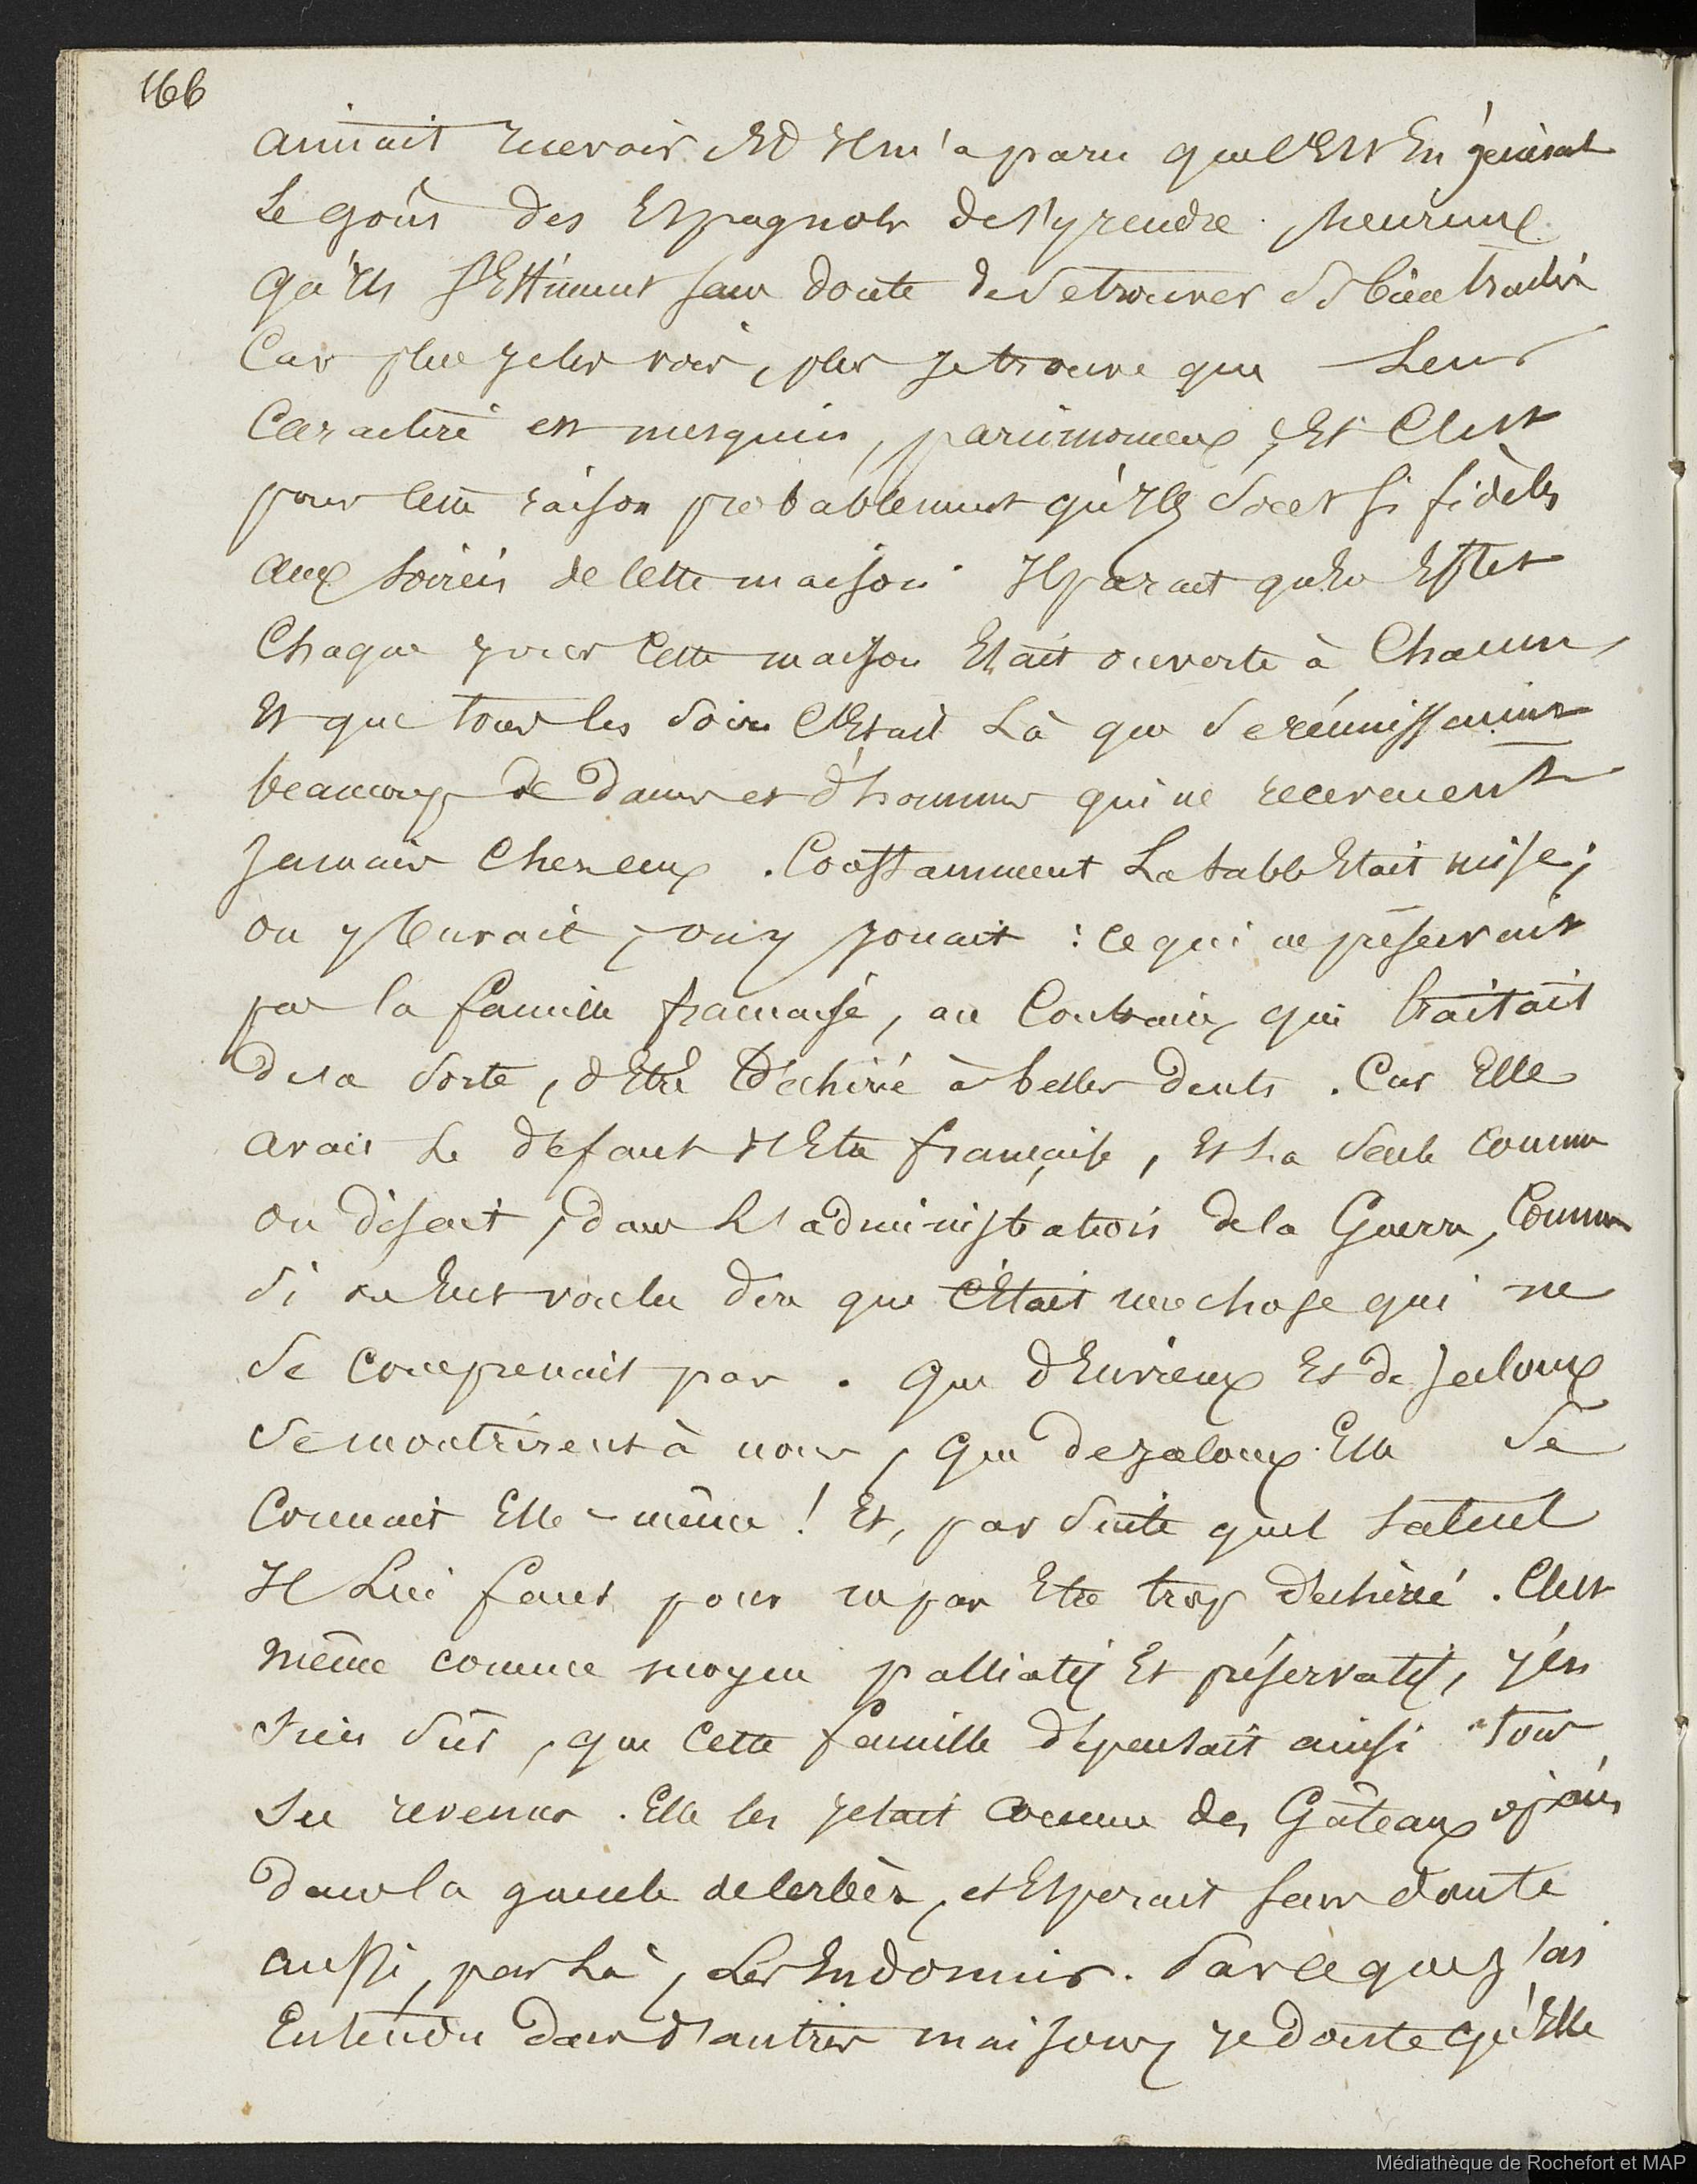 166
aimait recevoir. Et Il m'a paru que c'Est En général
Le goût des Espagnols de s'y rendre. heureux
qu'Ils s'Estiment sans doute de se trouver si bien traités
Car plus je les vois, plus je trouve que Leur
Caractère est mesquin, parcimonieux, Et C'est
pour cette raison probablement qu'Ils sont si fidèles
aux soirées de cette maison. Il parait qu'En Effet
Chaque jour Cette maison Etait ouverte à Chacun,
Et que tous les soirs C'Etait Là que se réunissaient
beaucoup de Dames et d'hommes qui ne recevaient
jamais Chez eux. Constamment La table Etait mise;
on y buvait, on y jouait : ce qui ne préservait
pas la famille française, au Contraire, qui traitait
de la sorte, d'Etre Déchirée à belles dents. Car Elle
avait Le défaut d'Etre française, Et La seule comme
on disait, dans L'administration de la Guerre, Comme
si on Eut voulu dire que c'Etait une chose qui ne
se comprenait pas. Que d'Envieux Et de jaloux
se montrèrent à nous, Que de jaloux Elle se
Connait Elle-même ! Et, par suite quel talent
Il Lui faut pour ne pas Etre trop déchirée. C'est
même comme moyen palliatif Et préservatif, j'en
suis sûr, que Cette famille dépensait ainsi tous
ses revenus. Elle les jetait comme des Gâteaux
dans la gueule de cerbère, et Espérait sans doute
aussi, par Là, Les Endormir. Par ce que j'ai
Entendu dans d'autres maisons je doute qu'Elle
Médiathèque de Rochefort et MAP